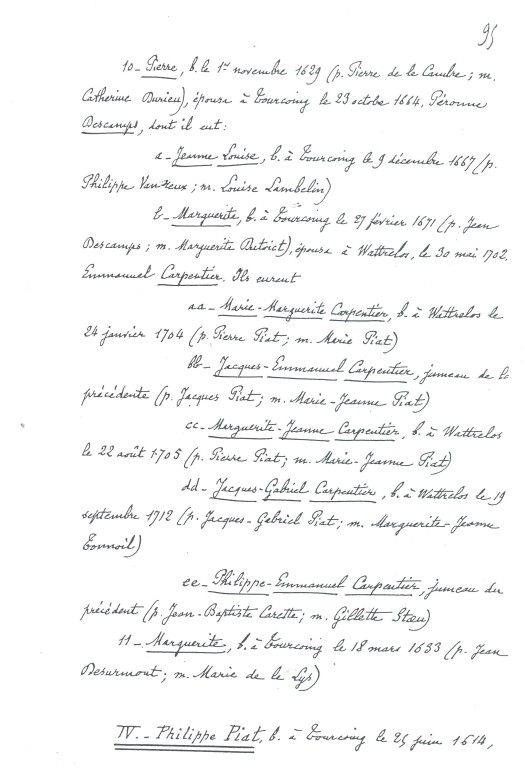 95
10_ Pierre, b. le 1er novembre 1629 (p. Pierre de le Cambre ; m.
Catherine Durieu), épousa à Tourcoing le 23 octobre 1664, Péronne
Descamps, dont il eut :
a_ Jeanne Louise, b. à Tourcoing le 9 décembre 1667 (p.
Philippe Vanzeux ; m. Louise Lambelin)
b_ Marguerite, b. à Tourcoing le 27 février 1671 (p. Jean
Descamps ; m. Marguerite Butoict), épousa à Wattrelos, le 30 mai 1702,
Emmanuel Carpentier. Ils eurent
aa_ Marie-Marguerite Carpentier, b. à Wattrelos le
24 janvier 1704 (p. Pierre Piat ; m. Marie Piat)
bb_ Jacques-Emmanuel Carpentier, jumeau de la
précédente (p. Jacques Piat ; m. Marie-Jeanne Piat)
cc_ Marguerite-Jeanne Carpentier, b. à Wattrelos
le 22 août 1705 (p. Pierre Piat ; m. Marie-Jeanne Piat)
dd_ Jacques-Gabriel Carpentier, b. à Wattrelos le 19
septembre 1712 (p. Jacques-Gabriel Piat ; m. Marguerite-Jeanne
Tonnoil)
ee_ Philippe-Emmanuel Carpentier, jumeau du
précédent (p. Jean-Baptiste Carette ; m. Gillette)
11_ Marguerite, b. à Tourcoing le 18 mars 1633 (p. Jean
Desurmont ; m. Marie de le Lys)
IV._ Philippe Piat, b. à Tourcoing le 25 juin 1614,